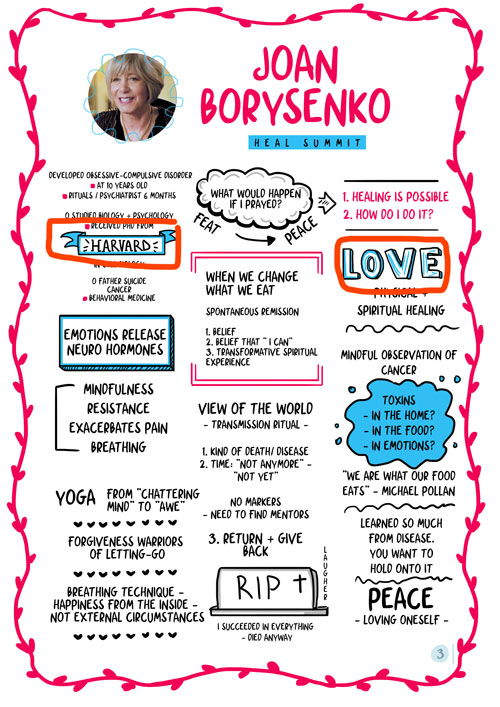 JOAN
BORYSENKO
HEAL SUMMIT
DEVELOPED OBSESSIVE-COMPULSIVE DISORDER
AT 10 YEARS OLD
RITUALS / PSYCHATRIST 6 MONTHS
O STUDIED BIOLOGY + PSYCHOLOGY
RECEIVED PHD FROM
HARVARD
O FATHER SUICIDE
CANCER
BEHAVIORAL MEDICINE
EMOTIONS RELEASE
NEURO HORMONES
MINDFULNESS
RESISTANCE
EXACERBATES PAIN
BREATHING
YOGA FROM "CHATTERING
MIND" TO "AWE"
FORGIVENESS WARRIORS
OF LETTING-GO
BREATHING TECHNIQUE -
HAPPINESS FROM THE INSIDE -
NOT EXTERNAL CIRCUMSTANCES
WHAT WOULD HAPPEN
IF I PRAYED?
FEAT
PEACE
WHEN WE CHANGE
WHAT WE EAT
SPONTANEOUS REMISSION
1. BELIEF
2. BELIEF THAT " I CAN"
3. TRANSFORMATIVE SPIRITUAL
EXPERIENCE
VIEW OF THE WORLD
- TRANSMISSION RITUAL -
1. KIND OF DEATH/ DISEASE
2. TIME: "NOT ANYMORE" -
"NOT YET"
NO MARKERS
- NEED TO FIND MENTORS
3. RETURN + GIVE
BACK
RIP
LAUGHER
I SUCCEEDED IN EVERYTHING
- DIED ANYWAY
1. HEALING IS POSSIBLE
2. HOW DO I DO IT?
LOVE
PHYSICAL +
SPIRITUAL HEALING
MINDFUL OBSERVATION OF
CANCER
TOXINS
- IN THE HOME?
- IN THE FOOD?
- IN EMOTIONS?
"WE ARE WHAT OUR FOOD
EATS" - MICHAEL POLLAN
LEARNED SO MUCH
FROM DISEASE.
YOU WANT TO
HOLD ONTO IT
PEACE
- LOVING ONESELF -
3